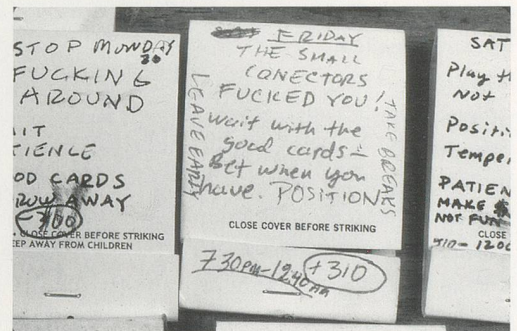 STOP MUNDAY
20
FUCKING
AROUND
OD CARDS
AWAY
-700
CLOSE COVER BEFORE STRIKING
EEP AWAY FROM CHILDREN
FRIDAY
THE SMALL
CONECTORS
FUCKED YOU!
Wait with the
good cards -
Bet when you
have. POSITION
LEAVE EARLY
TAKE BREAKS
CLOSE COVER BEFORE STRIKING
730PM-1240AM
+310
SAT
Play th
Not
Positi
Temper
PATIEN
MAKE $
NOT FUN
CLOSE
710- 1200